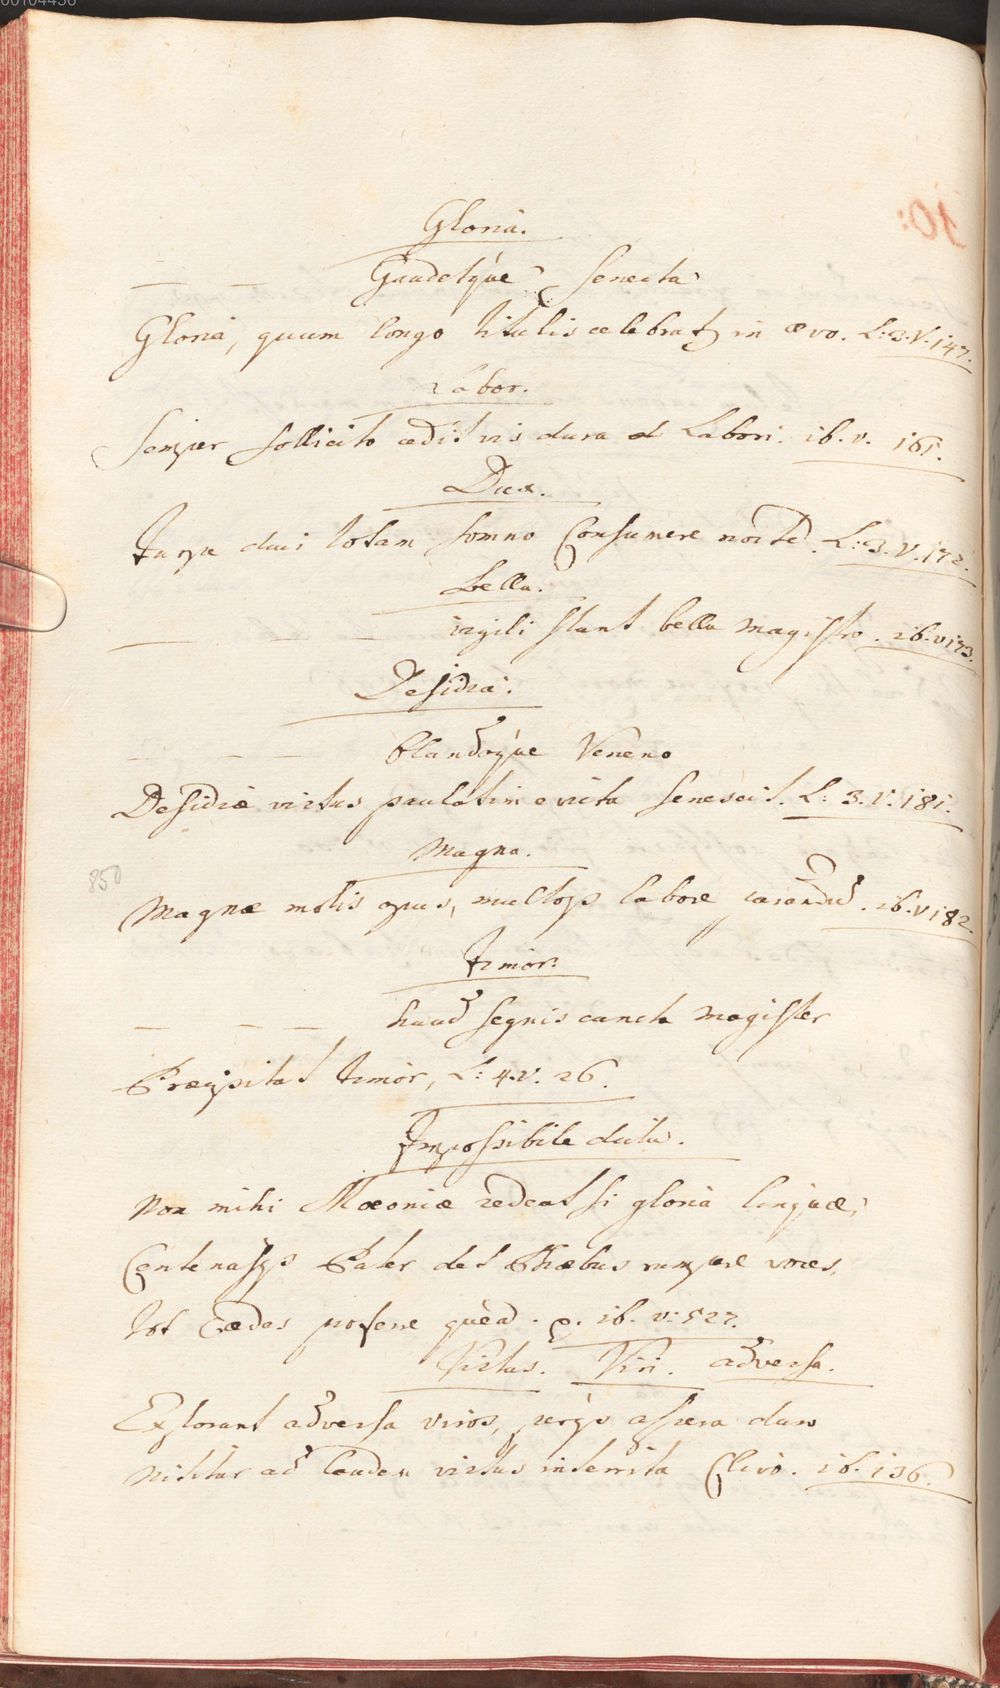 00104436
10:
Gloria.
— — Gaudetque senecta
Gloria, quum longo titulis celebratq in ævo. L: 3. V. 147.
Labor.
Semper sollicito cedit vis dura Labori. ib. v. 161.
Dux.
Turpe duci totam somno Consumere noctem. L: 3. V. 172.
Bella.
— — — vigili stant bella magistro. ib. v 173.
Desidia.
— — — blandoque Veneno
Desidiæ virtus paulatim evicta senescit. L: 3. V. 181.
Magna.
850
Magnæ molis opus, multoqs labore parandum. ib. v 182.
Timor.
— — — haud segnis cuncta magister
Præcipitat Timor, L: 4. V. 26.
Impossibile dictu.
Non mihi Mæoniæ redeat si gloria linguæ,
Centenasqs Pater det Phœbus rumpere voces,
Tot Cædes proferre queam. ib. v: 527.
Virtus. Viri. adversa.
Explorant adversa viros, perqs aspera duro
Nititur ad laudem virtus interrita Clivo. ib. 136.